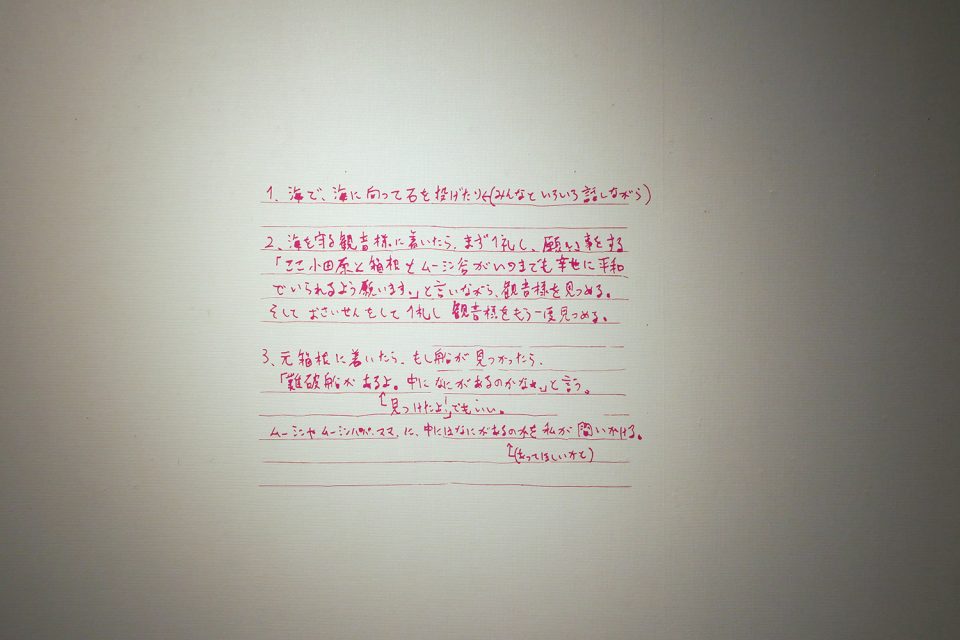 1、海で、海に向って石を投げたり←(みんなといろいろ話しながら)
2、海を守る観音様に着いたら、まず1礼し、願い事をする
「ここ小田原と箱根とムーミン谷がいつまでも幸せに平和
でいられるよう願います。」と言いながら、観音様を見つめる。
そして おさいせんをして 1礼し 観音様をもう一度見つめる。
3、元箱根に着いたら、もし船が見つかったら、
「難破船があるよ。中になにがあるのかなぁ」と言う。
↑「見つけたよ!」でもいい。
ムーミンやムーミンパパ、ママ、に、中にはなにがあるのかを私が問いかける。
↑(もってほしいかも)